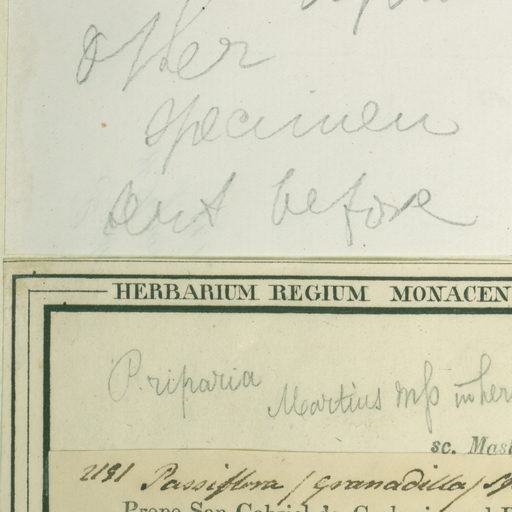 other
specimen
sent before
HERBARIUM REGIUM MONACEN
P. riparia Martius mss in her
sc. Mast
Passiflora (Granadilla)
Prope San Gabriel da